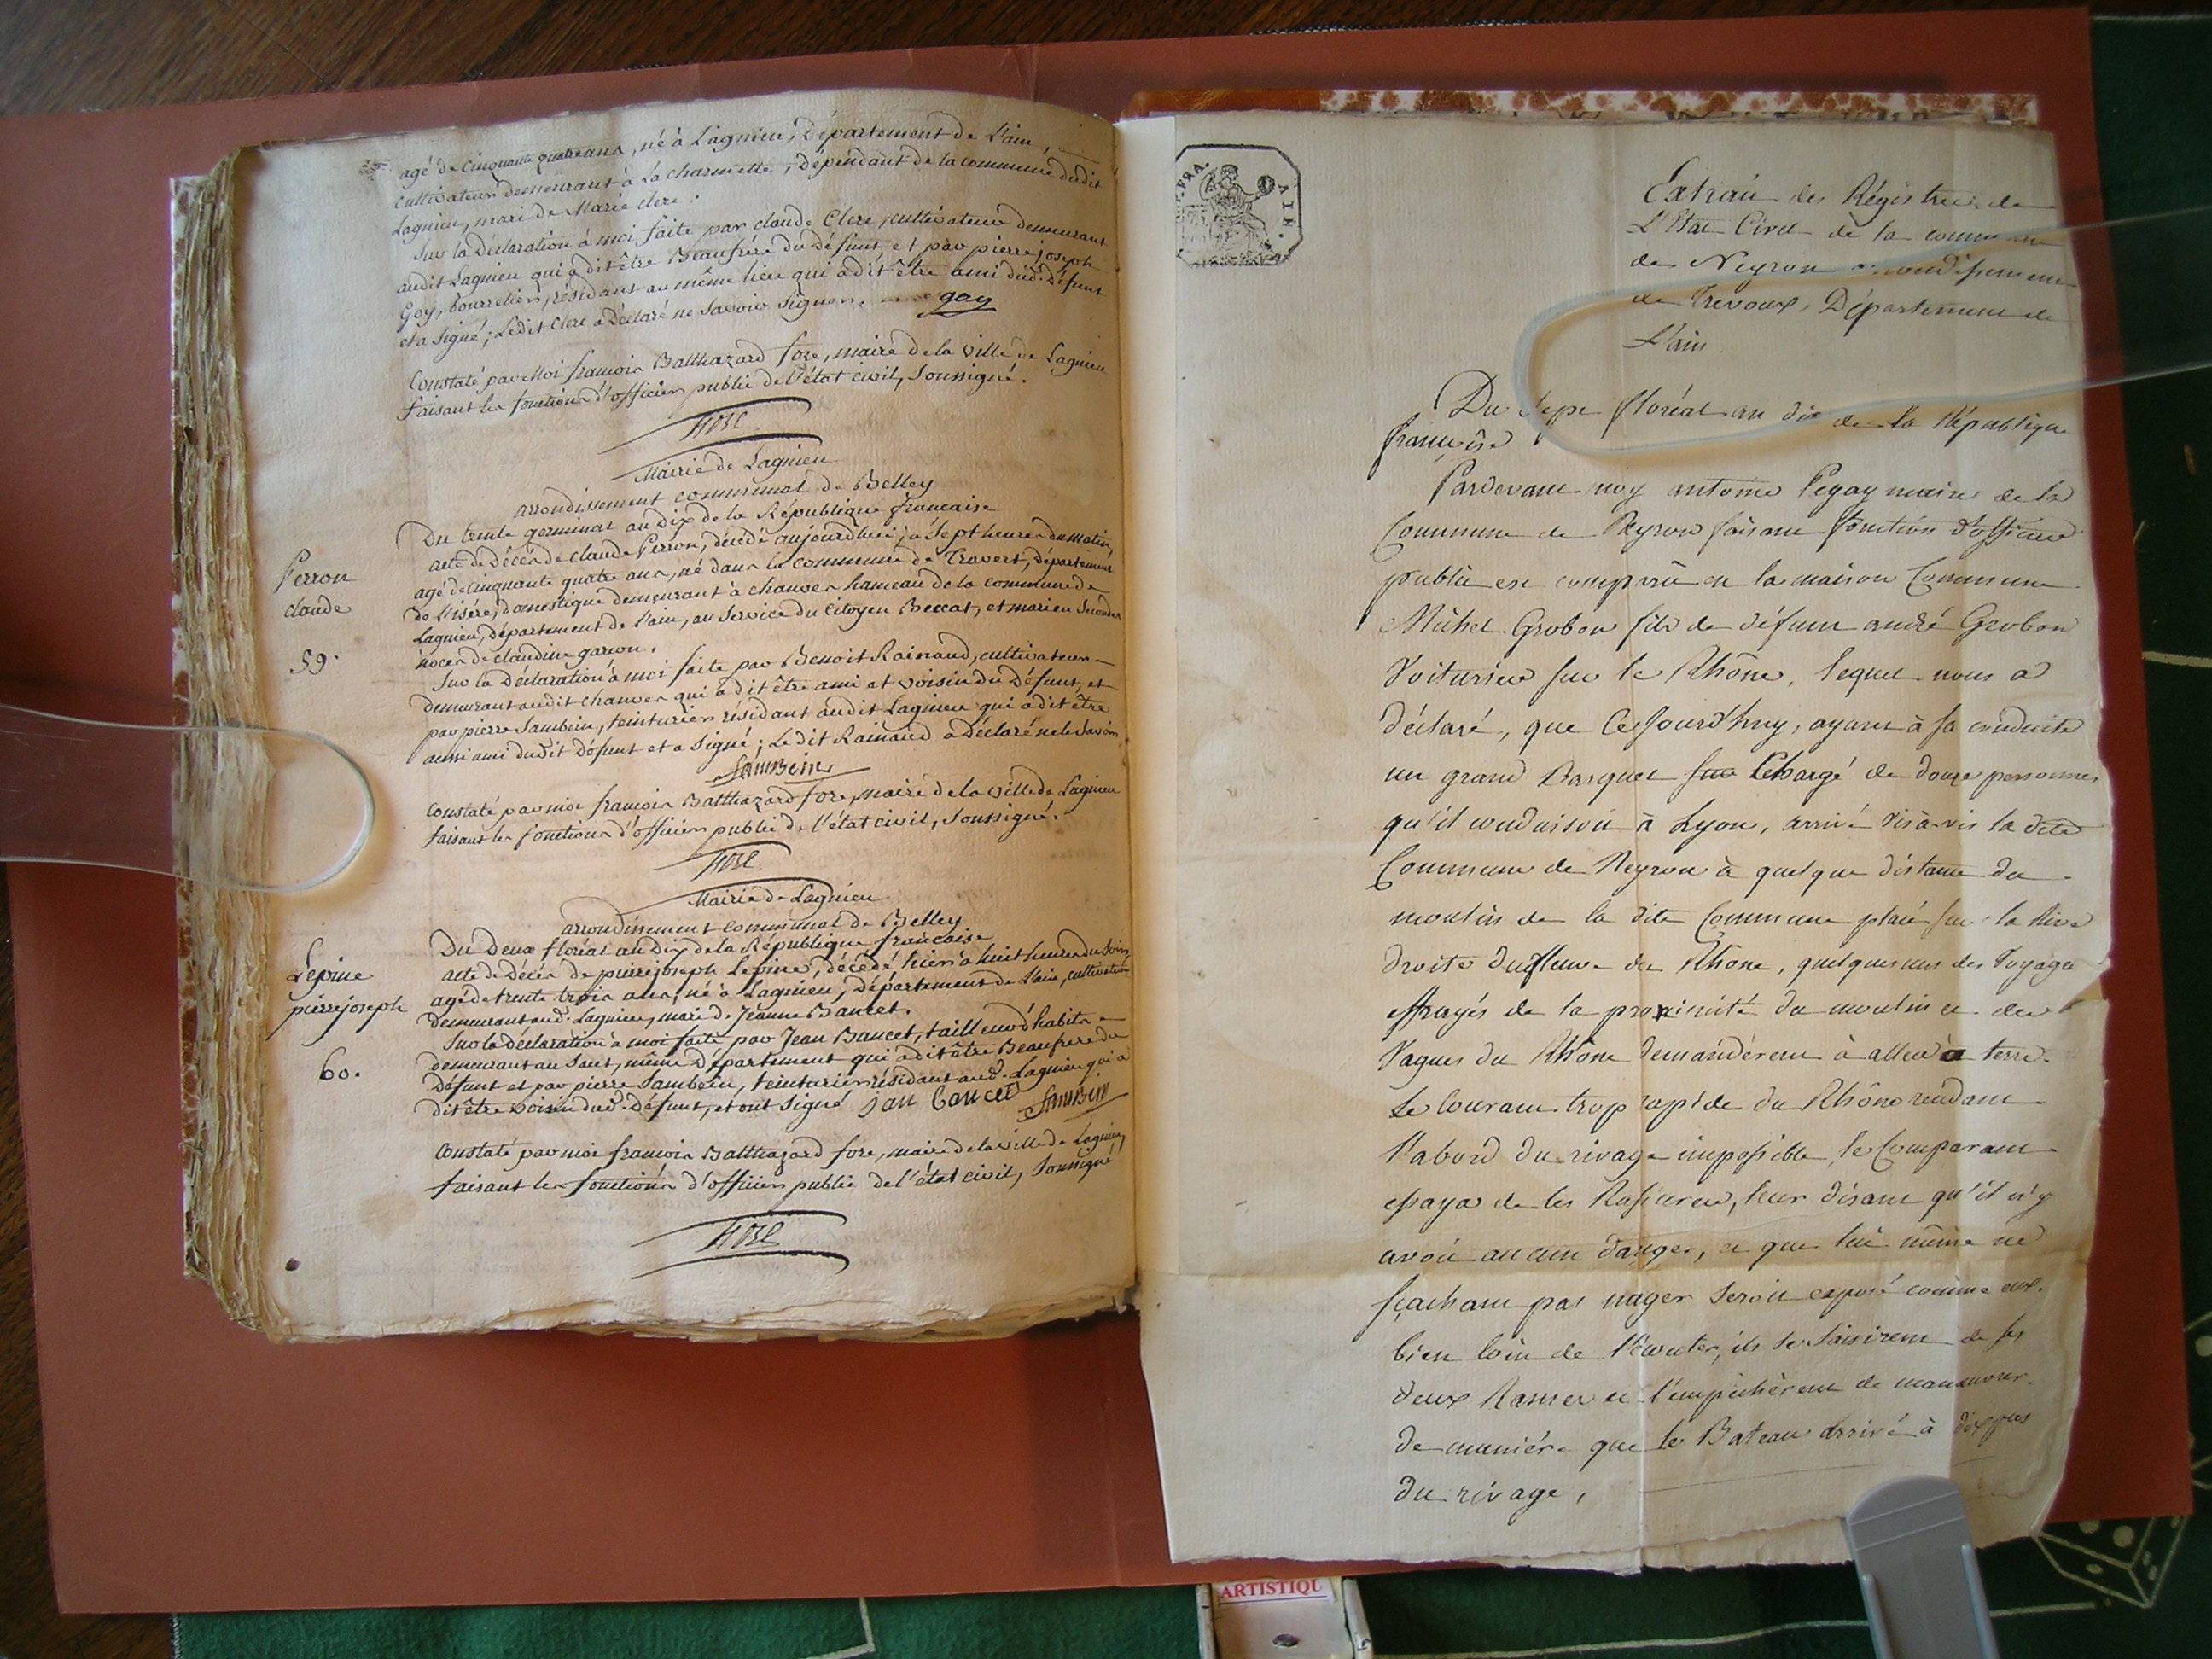 agé de Cinquante quatre ans, né à Lagnieu, Département de L'ain,
cultivateur demeurant à La charmette, dépendant de la commune dudit
Lagnieu, mari de Marie clerc.
Sur la déclaration à moi faite par claude Clerc, cultivateur demeurant
audit Lagnieu qui a dit être Beaufrére du défunt et par pierre joseph
Goy, bourrelier, résidant au même lieu qui a dit être ami dud. Défunt
et a signé; Ledit Clerc a déclaré ne Savoir Signer. goy
Constaté par Moi francois Balthazard fore, maire de la ville de Lagnieu
faisant les fonctions d'officier public de l'état civil, Soussigné.
fore
Mairie de Lagnieu
arrondissement communal de Belley
Du trente germinal an Dix de la République francaise
Perron
claude
59.
acte de Décès de claude Perron, décédé aujourd'hui, à Sept heures du matin,
agé de Cinquante quatre ans, né dans la commune de Travert, département
de L'isére, domestique demeurant à chauves hameau de la commune de
Lagnieu, département de l'ain, au Service du Citoyen Beccat, et mari en Secondes
noces de claudine garon.
Sur la Déclaration à moi faite par Benoit Rainaud, cultivateur
demeurant audit chauves qui a dit être ami et voisin du Défunt, et
par pierre Sambein, teinturier résidant audit Lagnieu qui a dit être
aussi ami dudit Défunt et a Signé; Le dit Rainaud a déclaré ne le Savoir.
SamBein
Constaté par moi francois Balthazard fore, maire de la ville de Lagnieu
faisant les fonctions d'officier public de l'état civil, Soussigné.
fore
Mairie de Lagnieu
arrondissement communal de Belley
Du Deux floréal an Dix de la République francaise
Lépine
pierre joseph
60.
acte de Décès de pierre joseph Lépine, décédé hier à huit heures du Soir,
agé de trente trois ans, né à Lagnieu, Département de L'ain, cultivateur
demeurant aud. Lagnieu, mari de Jeanne Bancet.
Sur la déclaration à moi faite par Jean Bancet, tailleur d'habits
demeurant au Saut, même Département qui a dit être Beaufrere du
Défunt et par pierre Sambein, teinturier résidant aud. Lagnieu qui a
dit être voisin dud. Défunt, et ont Signé jan bancet SamBein
Constaté par moi francois Balthazard fore, maire de la ville de Lagnieu,
faisant les fonctions d'officier public de l'état civil, Soussigné
fore
FRA. AIN
Extrait des Régistres de
L'Etat Civil de la commune
de Neyron arrondissement
de Trevoux, Département de
L'ain
Du Sept floréal an dix de la République
françoise
Pardevant moy antoine Pegay maire de la
Commune de Neyron faisant fonction d'officier
public est comparu en la maison Commune
Michel Grobon fils de défunt andré Grobon
Voiturier sur le Rhône, lequel nous a
déclaré, que Cejourd'huy, ayant à sa conduite
un grand Barquet sur Chargé de douze personnes
qu'il conduisoit à Lyon, arrivé vis à vis la dite
Commune de Neyron à quelque distance du
moulin de la dite Commune placé sur la Rive
droite du fleuve du Rhône, quelques uns des Voyage
effrayés de la proximité du moulin et des
Vagues du Rhône demandérent à aller à terre.
Le Courant trop rapide du Rhône rendant
l'abord du rivage impossible, le Comparant
essaya de les Rassurer, leur disant qu'il n'y
avoit aucun danger, et que lui même ne
sçachant pas nager seroit exposé comme eux.
bien loin de l'écouter, ils se saisirent de ses
deux Rames et l'empéchérent de manœuvr.
de maniére que le Bateau arrivé à dix pas
du rivage,
ARTISTIQU